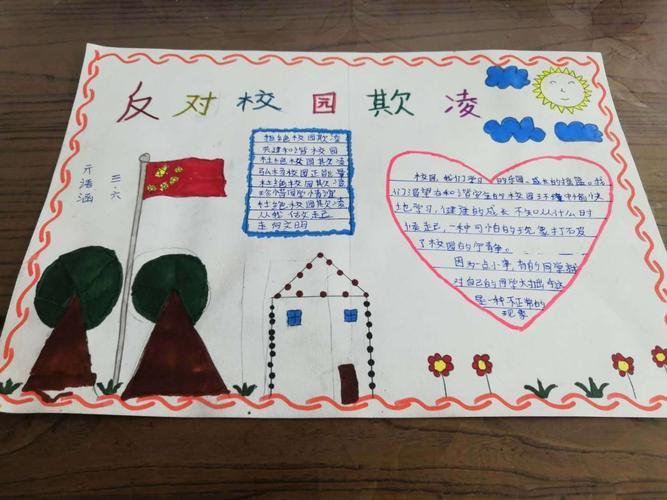 反对校园欺凌
三、六
亓浩涵
拒绝校园欺凌
共建和谐校园
杜绝校园欺凌
弘扬校园正能量
杜绝校园欺凌
珍惜同学情谊
杜绝校园欺凌
从我做起
走向文明
校园,我们学习的乐园、成长的摇篮。我
们渴望在和谐学生的校园环境中愉快
地学习,健康的成长 不知从什么时
候起,一种可怕的现象打破
了校园的宁静。
因为一点小事,有的同学就
对自己的同学大打出手这
是一种不正常的
现象